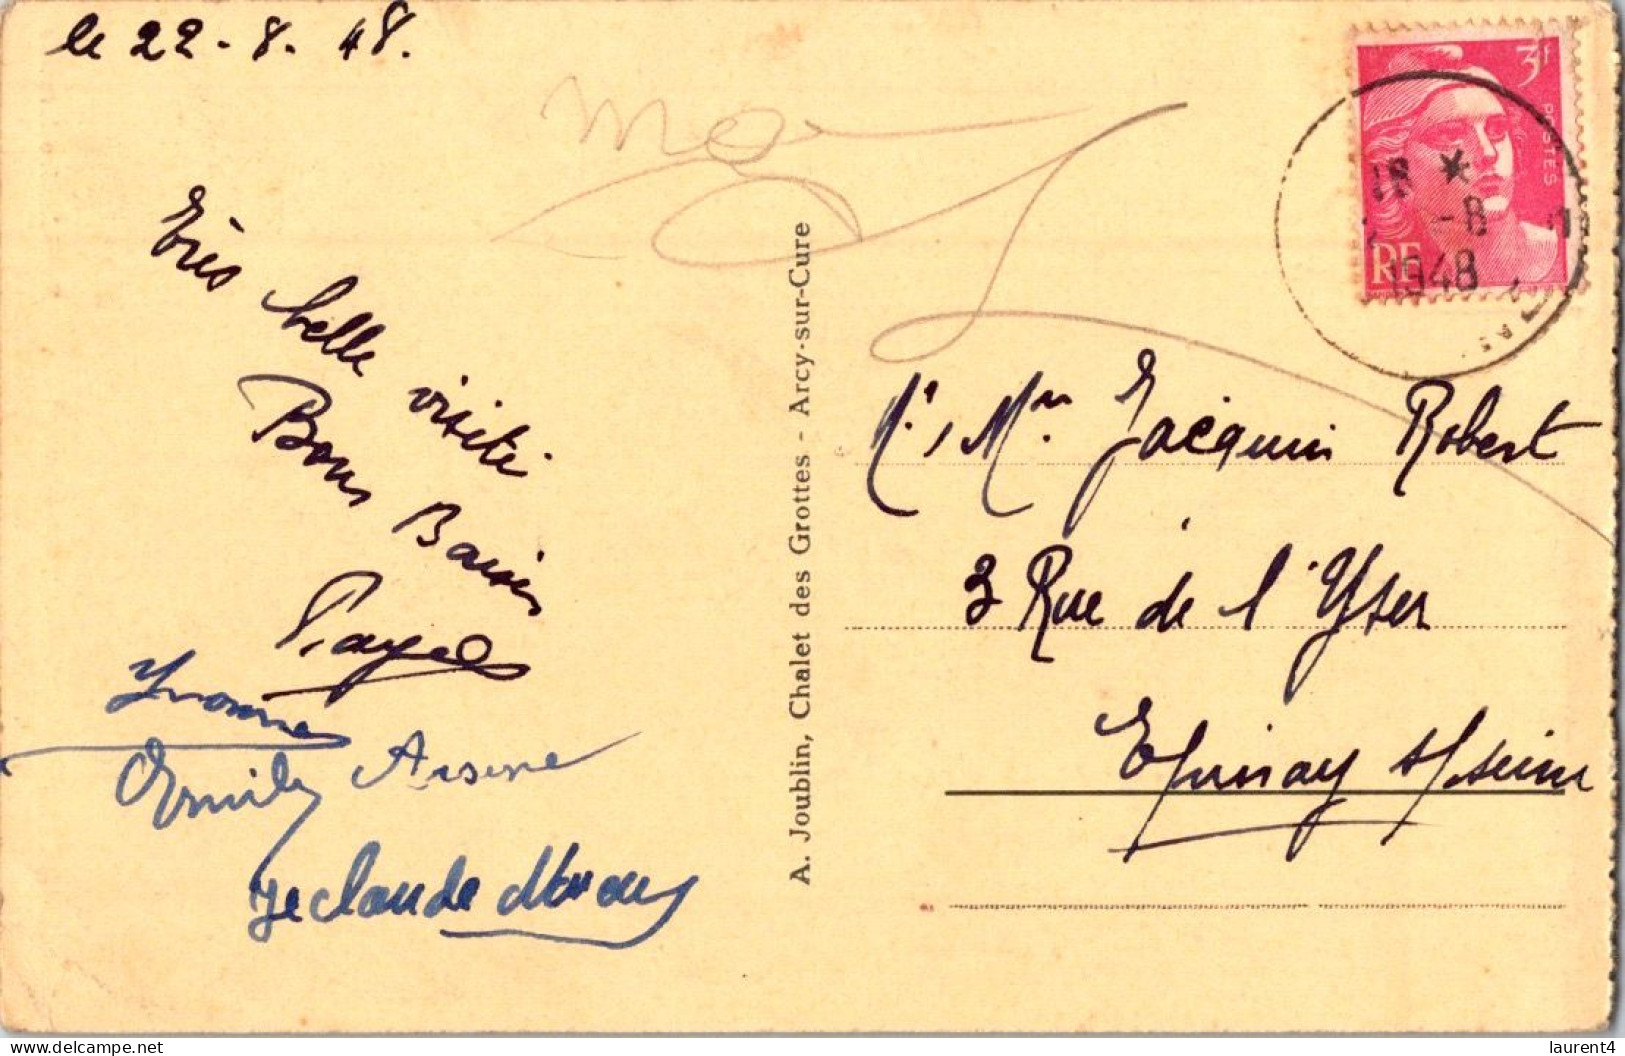 le 22-8. 48.
Très belle visite
Bons Baisers
Yvonne
Emily Arsène
Je claude
A. Joublin, Chalet des Grottes - Arcy-sur-Cure
3F
POSTES
RF
18 *
-8
1948
Mr, Mme Jacquin Robert
3 Rue de l'Yser
Epinay s/seine
laurent4
delcampe.net